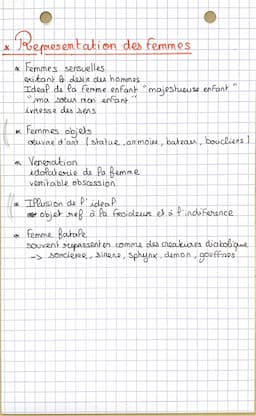 * Representation des femmes
* Femmes sensuelles
exitant le desir des hommes
Ideal de la femme enfant "majestueuse enfant"
"ma soeur mon enfant"
ivresse des sens
* Femmes objets
oeuvre d'art (statue, armoire, bateau, boucliers)
* Veneration
idolaterie de la femme
veritable obssession
* Illusion de l'ideal
objet ref à la froideur et à l'indiference
* Femme fatale
souvent represent en comme des creatures diabolique
-> sorciere, sirene, sphynx, demon, gouffres